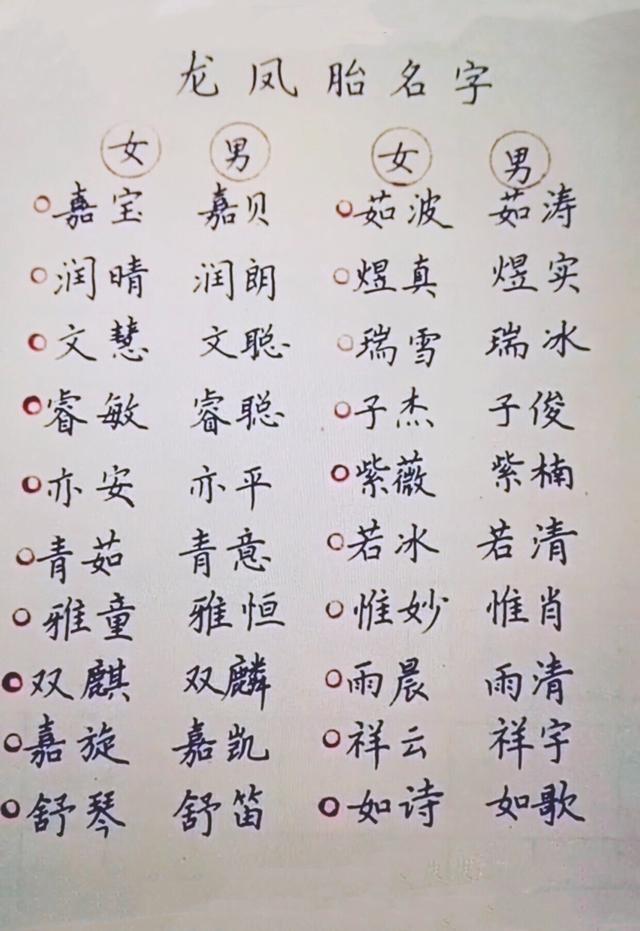 龙凤胎名字
女 男 女 男
嘉宝 嘉贝 茹波 茹涛
润晴 润朗 煜真 煜实
文慧 文聪 瑞雪 瑞冰
睿敏 睿聪 子杰 子俊
亦安 亦平 紫薇 紫楠
青茹 青意 若冰 若清
雅童 雅恒 惟妙 惟肖
双麒 双麟 雨晨 雨清
嘉旋 嘉凯 祥云 祥宇
舒琴 舒笛 如诗 如歌